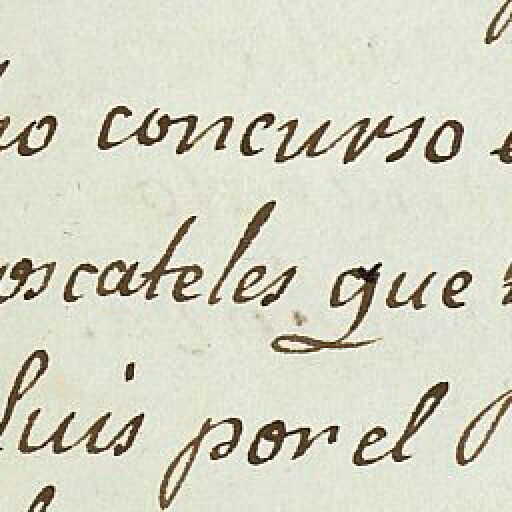 concurso
moscateles que
Luis por el